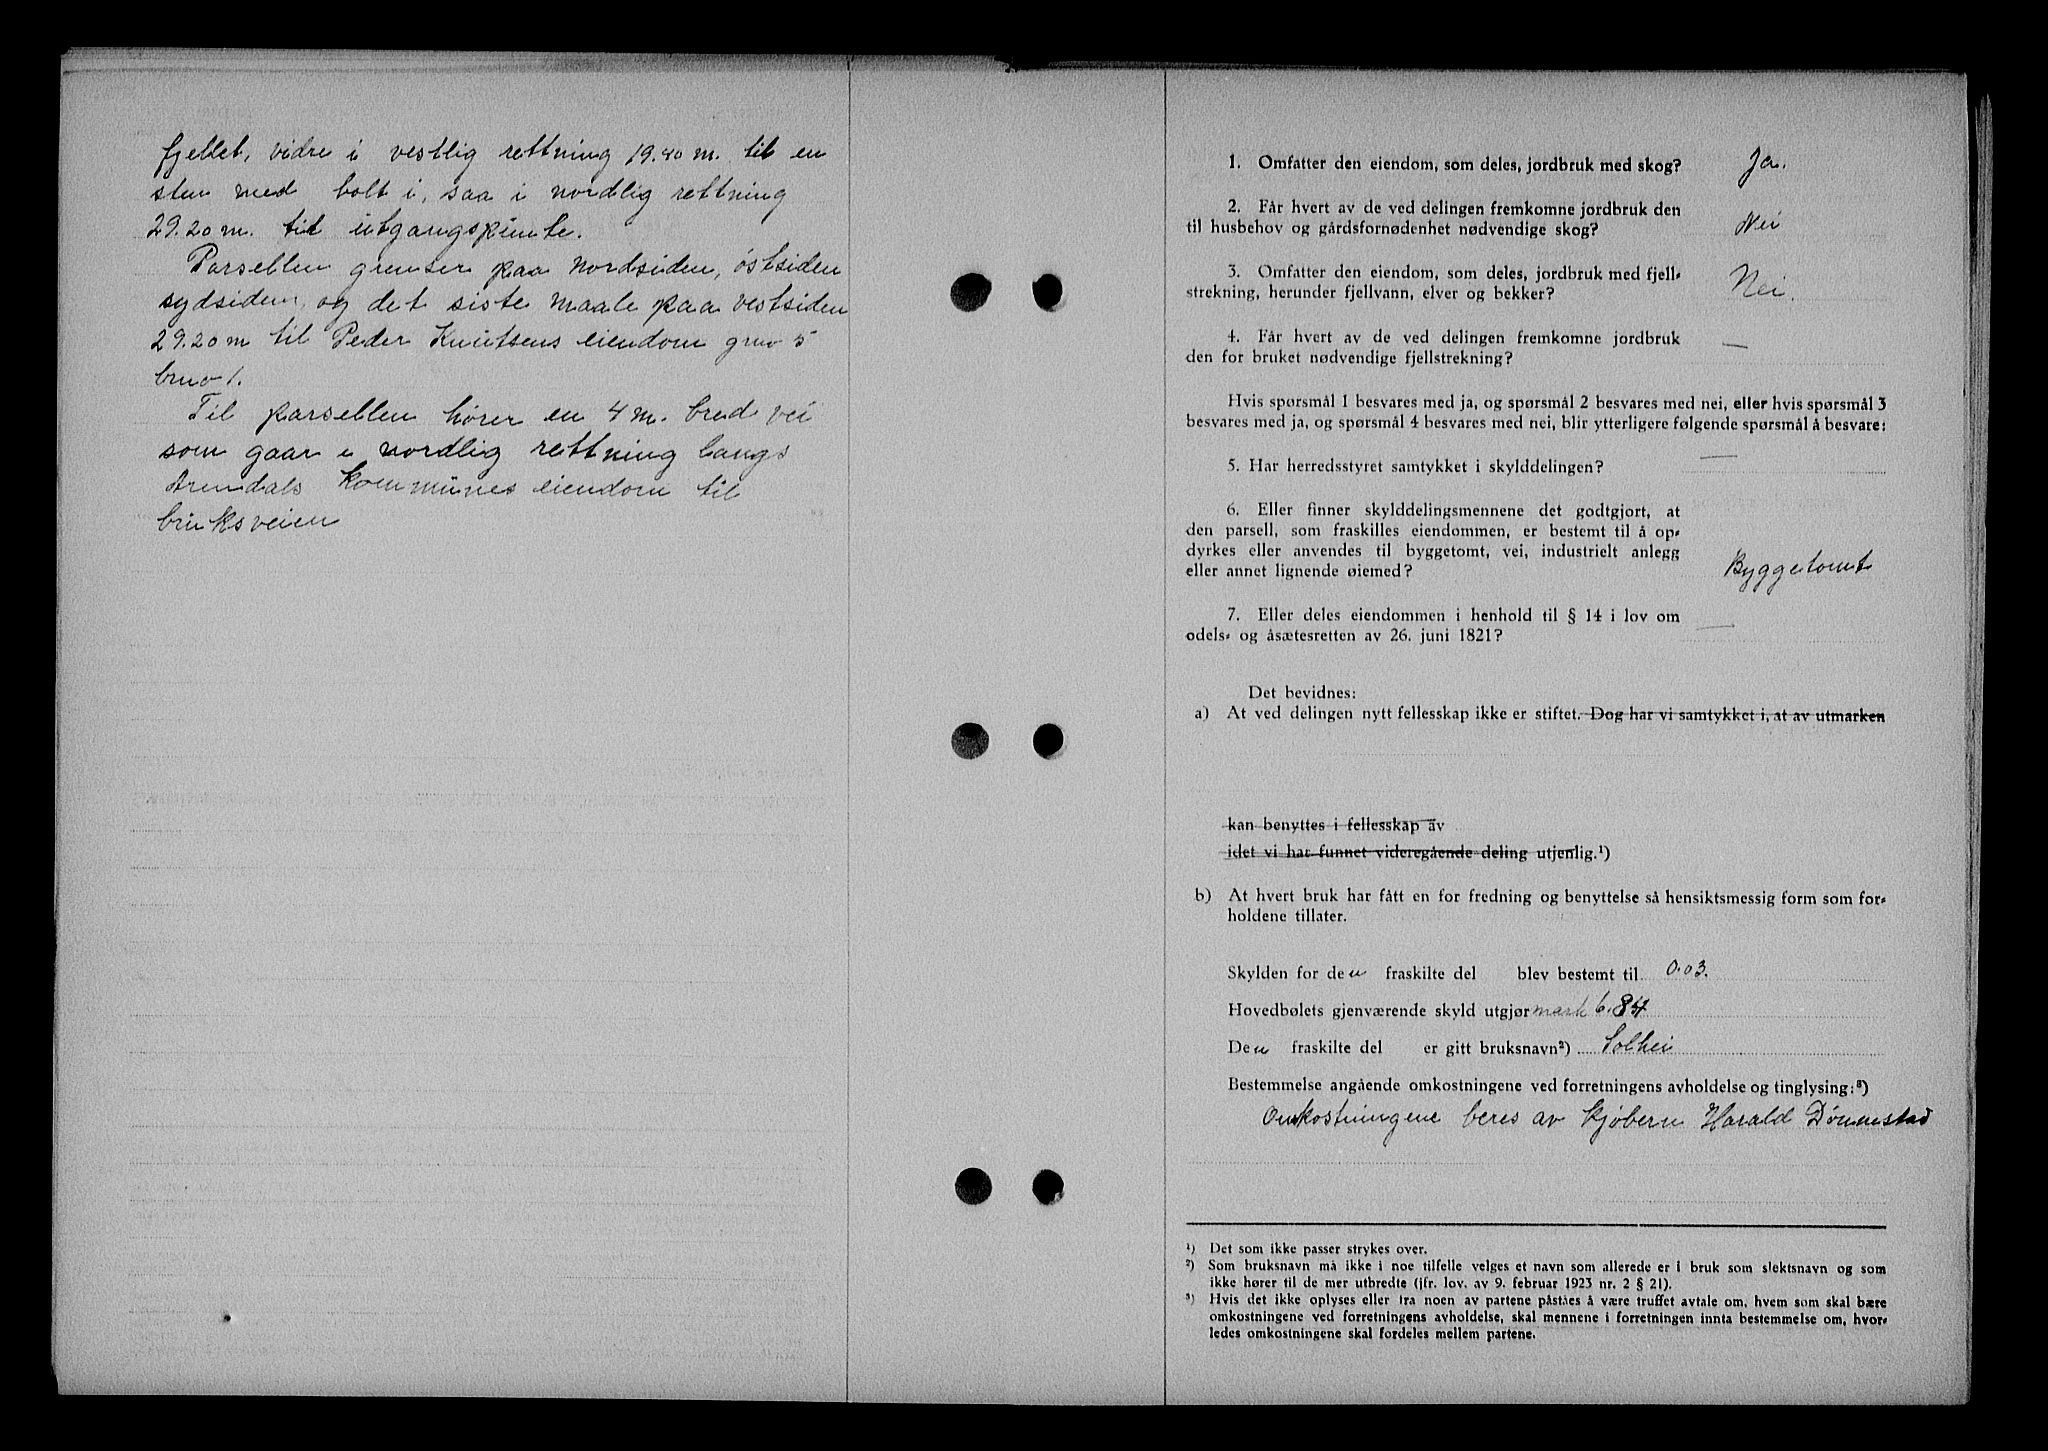 fjellet, vidre i vestlig rettning 19.40 m. til en
sten med bolt i, saa i nordlig rettning
29.20 m. til utgangspunte.
Parsellen grenser paa nordsiden, østsiden
sydsiden, og det siste maale paa vestsiden
29.20 m til Peder Knutsens eiendom gno 5
bno 1.
Til parsellen hører en 4 m. bred vei
som gaar i nordlig rettning langs
Arendals kommunes eiendom til
bruksveien
1. Omfatter den eiendom, som deles, jordbruk med skog? Ja.
2. Får hvert av de ved delingen fremkomne jordbruk den
til husbehov og gårdsfornødenhet nødvendige skog? Nei
3. Omfatter den eiendom, som deles, jordbruk med fjell-
strekning, herunder fjellvann, elver og bekker? Nei.
4. Får hvert av de ved delingen fremkomne jordbruk
den for bruket nødvendige fjellstrekning? —
Hvis spørsmål 1 besvares med ja, og spørsmål 2 besvares med nei, eller hvis spørsmål 3
besvares med ja, og spørsmål 4 besvares med nei, blir ytterligere følgende spørsmål å besvare:
5. Har herredsstyret samtykket i skylddelingen? —
6. Eller finner skylddelingsmennene det godtgjort, at
den parsell, som fraskilles eiendommen, er bestemt til å op-
dyrkes eller anvendes til byggetomt, vei, industrielt anlegg
eller annet lignende øiemed? Byggetomt
7. Eller deles eiendommen i henhold til § 14 i lov om
odels- og åsætesretten av 26. juni 1821? —
Det bevidnes:
a) At ved delingen nytt fellesskap ikke er stiftet. Dog har vi samtykket i, at av utmarken
kan benyttes i fellesskap av
idet vi har funnet videregående deling utjenlig.¹)
b) At hvert bruk har fått en for fredning og benyttelse så hensiktsmessig form som for-
holdene tillater.
Skylden for den fraskilte del blev bestemt til 0.03.
Hovedbølets gjenværende skyld utgjør mark 6.84
Den fraskilte del er gitt bruksnavn²) Solhei
Bestemmelse angående omkostningene ved forretningens avholdelse og tinglysing:³)
Omkostningene beres av kjøbern Harald Dønnestad
¹) Det som ikke passer strykes over.
²) Som bruksnavn må ikke i noe tilfelle velges et navn som allerede er i bruk som slektsnavn og som
ikke hører til de mer utbredte (jfr. lov. av 9. februar 1923 nr. 2 § 21).
³) Hvis det ikke oplyses eller fra noen av partene påståes å være truffet avtale om, hvem som skal bære
omkostningene ved forretningens avholdelse, skal mennene i forretningen innta bestemmelse om, hvor-
ledes omkostningene skal fordeles mellem partene.